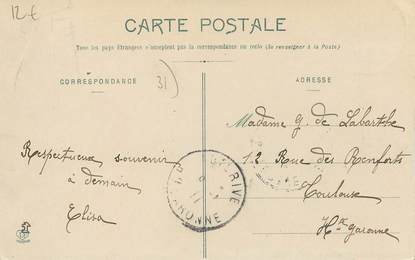 12 €
CARTE POSTALE
Tous les pays étrangers n'acceptent pas la correspondance au recto (Se renseigner à la Poste)
CORRESPONDANCE
31
ADRESSE
Respectueux souvenir
à demain
Elisa
RIVE
GARONNE
Madame G. de Labarthe
12 Rue des Renforts
Toulouse
Hte Garonne